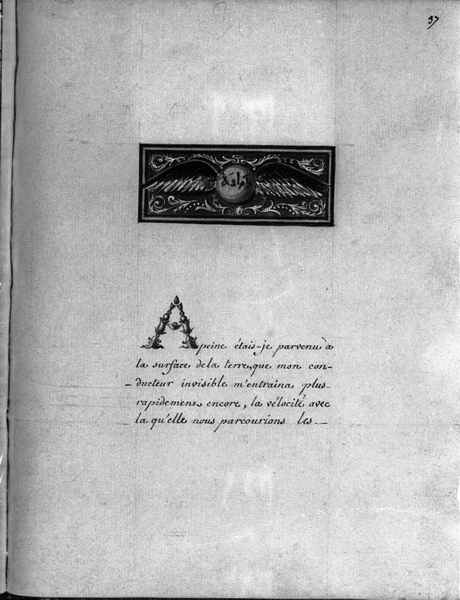 37
A peine étais-je parvenu à
la surface de la terre, que mon con-
-ducteur invisible m'entraina plus
rapidement encore, la vélocité avec
la qu'elle nous parcourions les